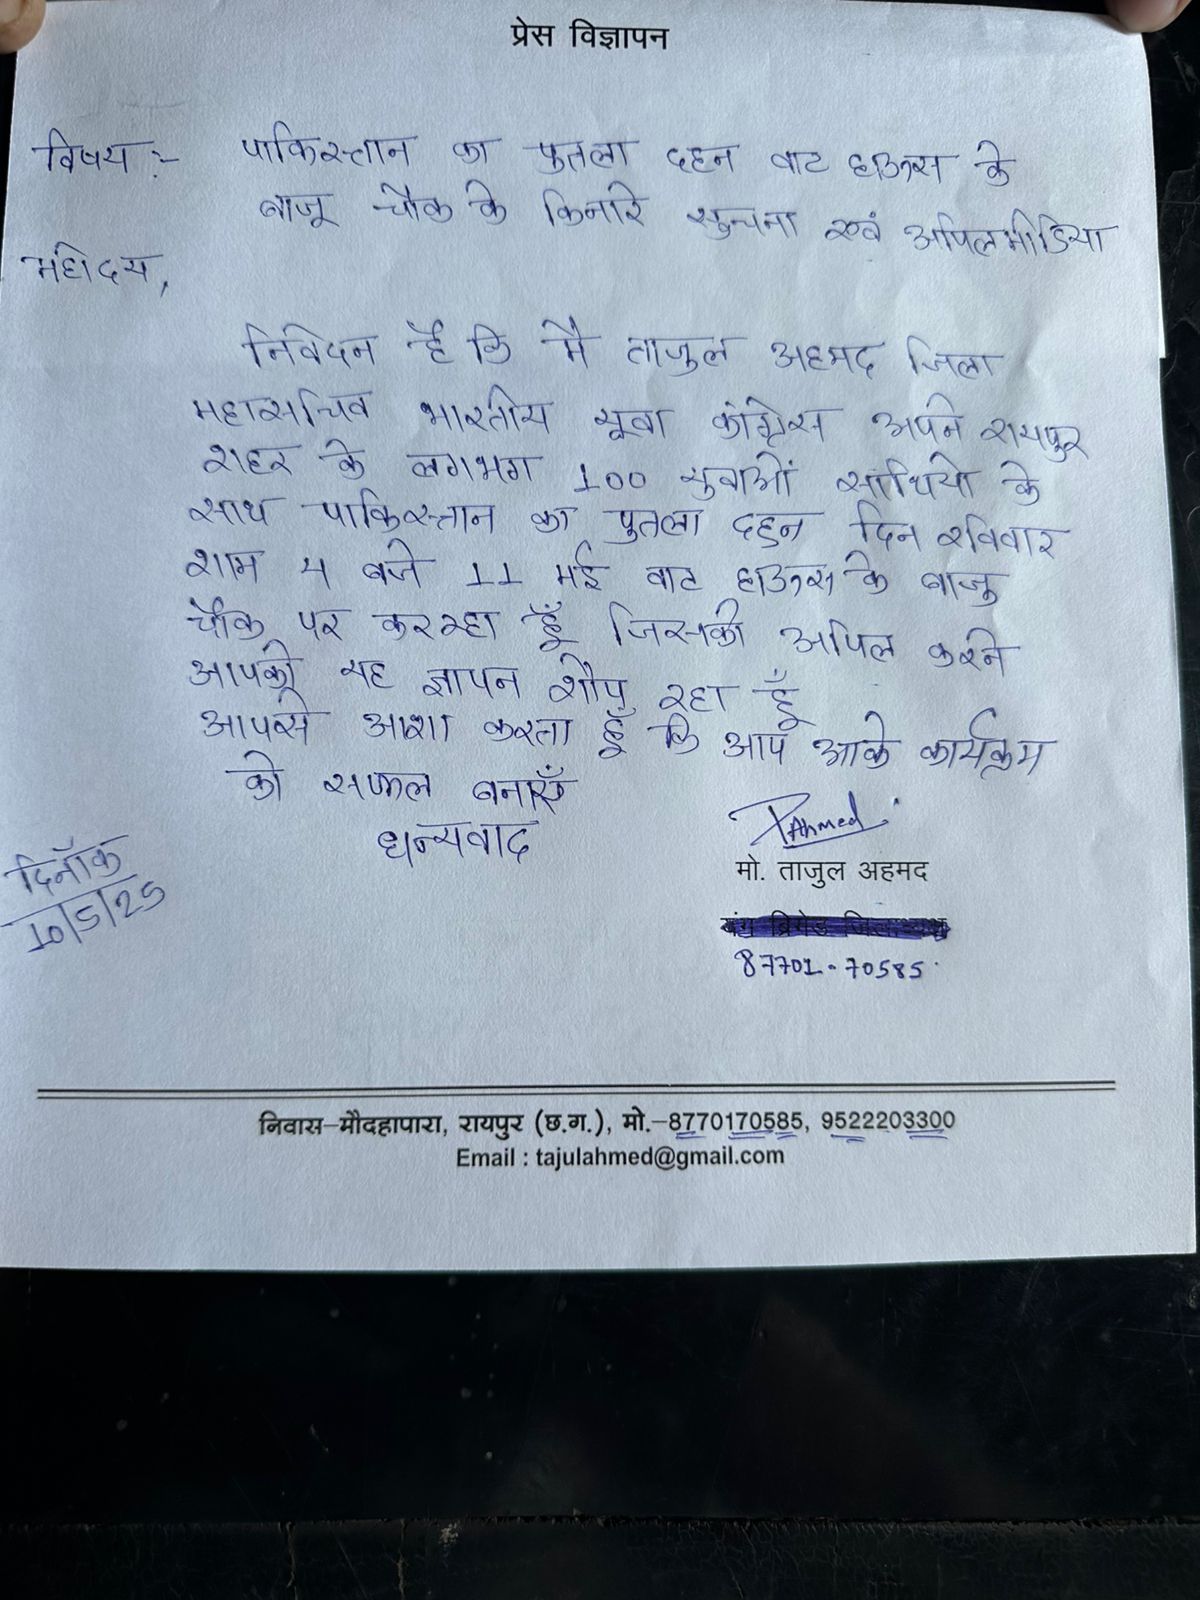 प्रेस विज्ञापन
विषय :- पाकिस्तान का पुतला दहन वाट हाऊस के
बाजू चौक के किनारे सुचना एवं अपिल मीडिया
महोदय,
निवेदन है कि मै ताजुल अहमद जिला
महासचिव भारतीय यूवा कांग्रेस अपने रायपुर
शहर के लगभग 100 युवाओं साथियो के
साथ पाकिस्तान का पुतला दहन दिन रविवार
शाम 4 बजे 11 मई वाट हाऊस के बाजु
चौक पर कर रहा हूँ जिसकी अपिल करने
आपको यह ज्ञापन शौप रहा हूँ
आपसे आशा करता हूँ कि आप आके कार्यक्रम
को सफल बनाएँ
धन्यवाद
TAhmed
मो. ताजुल अहमद
87701-70585
दिनाँक
10/5/25
निवास-मौदहापारा, रायपुर (छ.ग.), मो.-8770170585, 9522203300
Email : tajulahmed@gmail.com